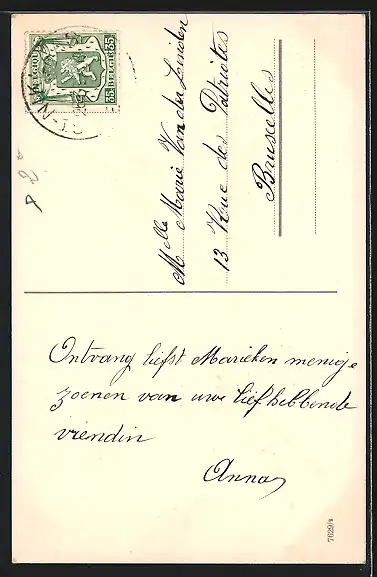 BELGIQUE
BELGIE
35
Mlle Marie Van der Linden
13 Rue des Patriotes
Bruxelles
Ontvang liefst Marieken menige
zoenen van uwe liefhebbende
vriendin
Anna